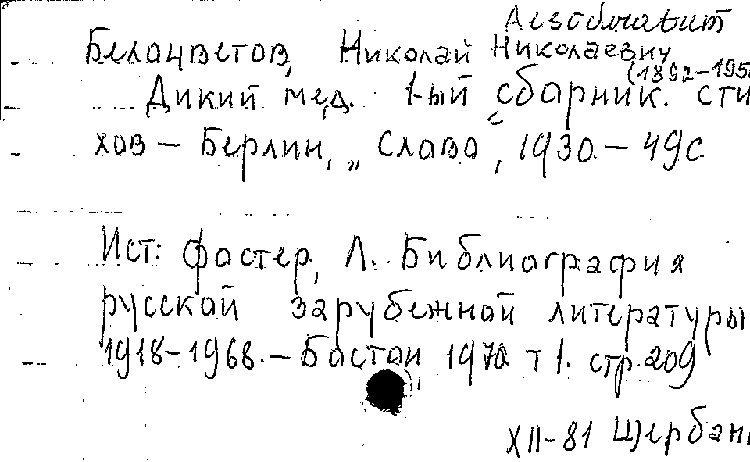 Белоцветов, Николай Николаевич
(1892-195
Дикий мед. 1-ый сборник. сти
хов - Берлин, „Слово", 1930. - 49с.
Ист: Фостер, Л. Библиография
русской зарубежной литературы
1918-1968. - Бостон 1970. т 1. стр. 209
XII-81 Щербан